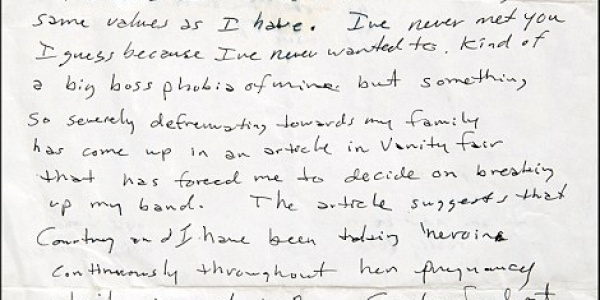 same values as I have. I've never met you
I guess because I've never wanted to. Kind of
a big boss phobia of mine. but something
so severely defremating towards my family
has come up in an article in Vanity fair
that has forced me to decide on breaking
up my band. The article suggests that
Courtney and I have been taking heroine
continuously throughout her pregnancy